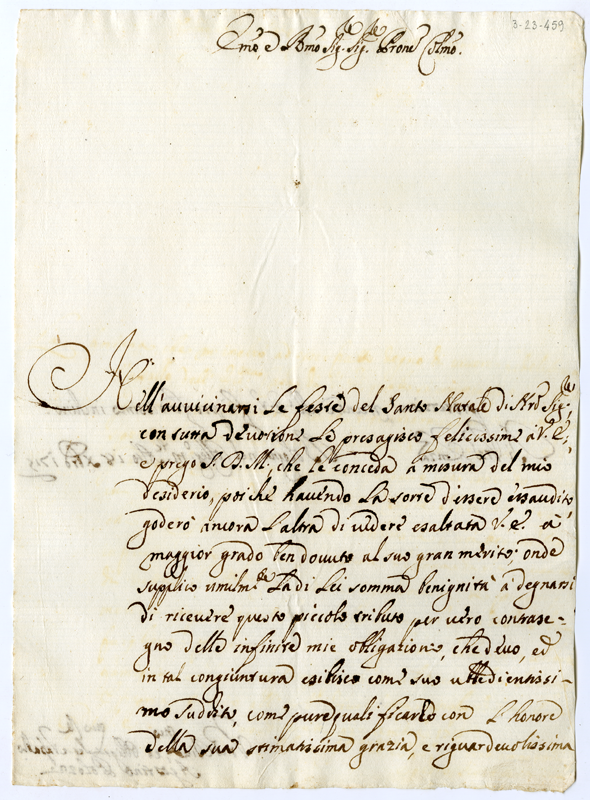 3-23-459
Emo, e Rmo Sig.re Sig.re Prone Colmo.
Nell'auvicinarsi Le feste del Santo Natale di Nro Sig.re,
con tutta devotione Le presagisco felicissime à V.E.,
e prego S.D.M., che le conceda à misura del mio
desiderio, poiche havendo La sorte d'essere essaudito
goderò ancora L'altra di vedere esaltata V.E. à
maggior grado ben dovuto al suo gran merito; onde
supplico umilm.te La di Lei somma benignità à degnarsi
di ricevere questo piccolo tributo per vero contrase=
gno delle infinite mie obligationi, che devo, ed
in tal congiuntura esibisco come suo ubbedientissi-
mo suddito, come pure qualificarlo con L'honore
della sua stimatissima grazia, e riguardevolissima